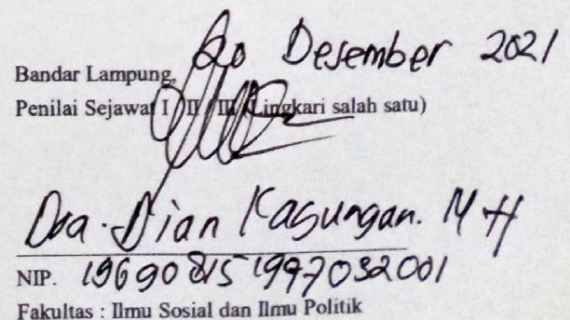 Bandar Lampung, 20 Desember 2021
Penilai Sejawat I / II / III (Lingkari salah satu)
Dra. Dian Kagungan. M H
NIP. 19690815 1997032001
Fakultas : Ilmu Sosial dan Ilmu Politik